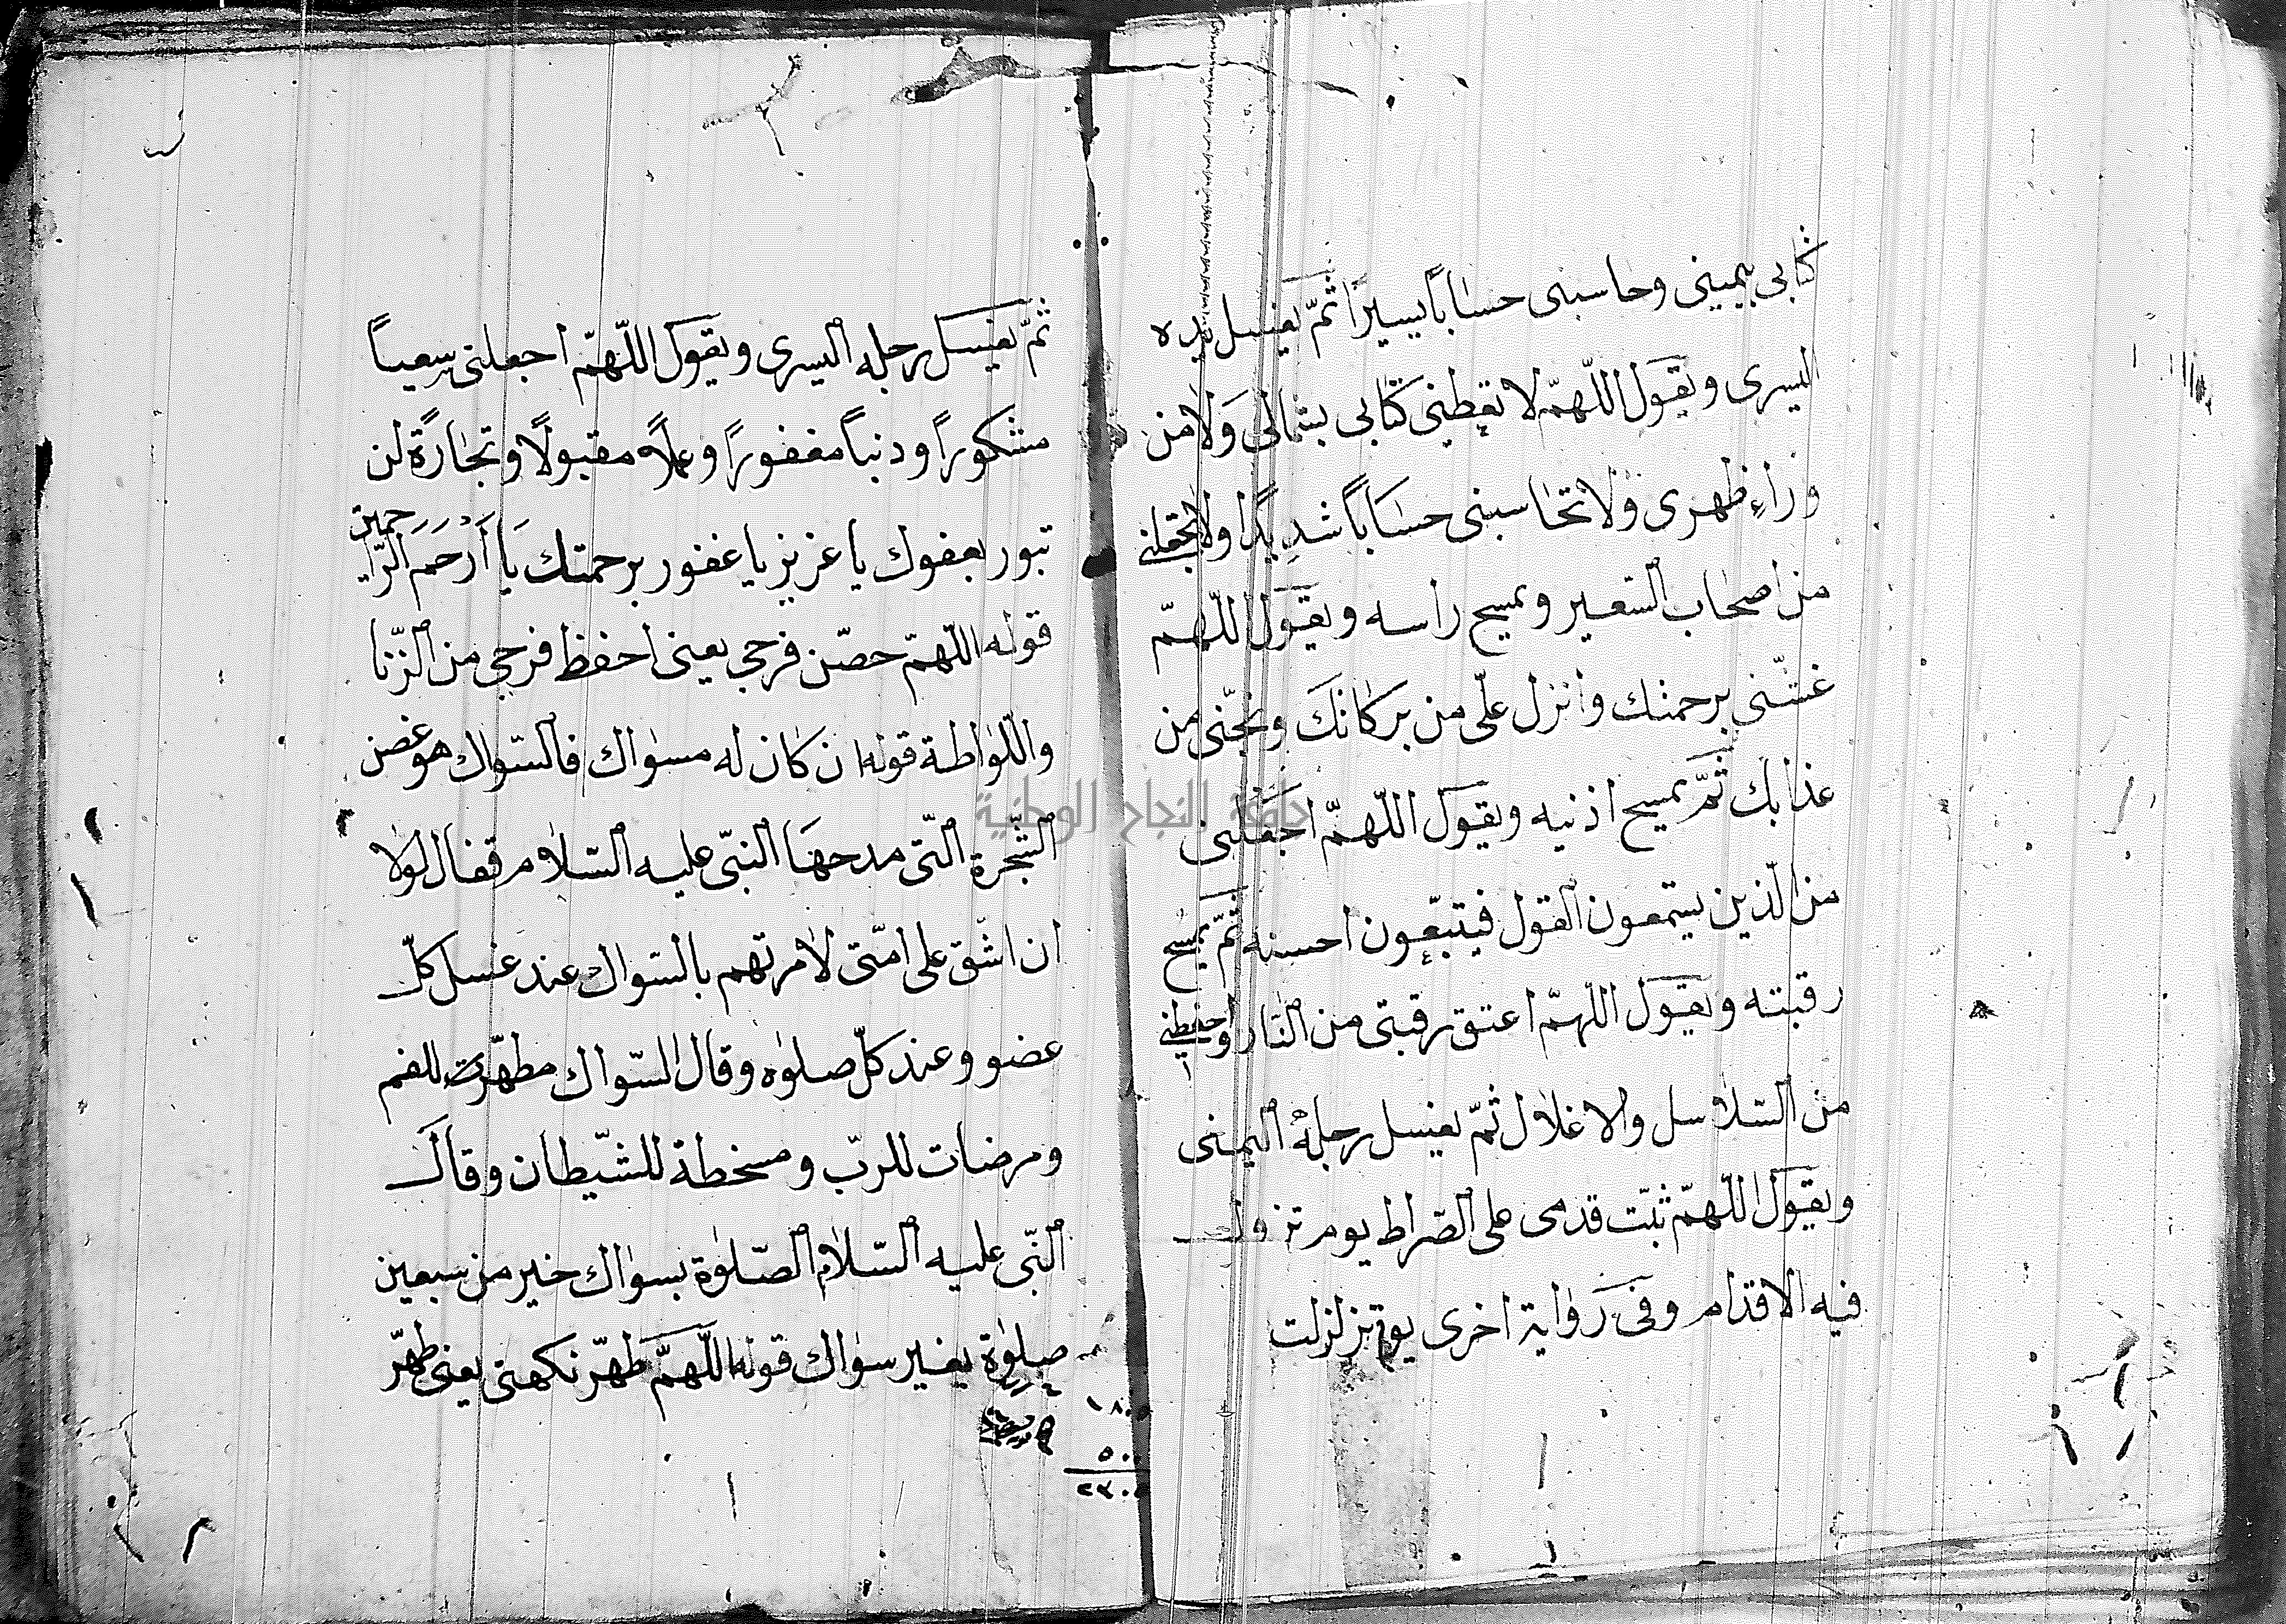 كتابى بيمينى وحاسبنى حساباً يسيراً ثمّ يغسل يده
اليسرى ويقول اللّهمّ لا تعطنى كتابى بشمالى ولا من
وراءِ ظهرى ولا تحاسبنى حساباً شديداً ولا تجعلنى
من اصحاب السّعير ويمسح راسه ويقول اللّهمّ
غشّنى برحمتك وانزل علّى من بركاتك ونجّنى من
عذابك ثمّ يمسح اذنيه ويقول اللّهمّ اجعلنى
من الّذين يستمعون القول فيتبّعون احسنه ثمّ يمسح
رقبته ويقول اللّهمّ اعتق رقبتى من النّار واحفظنى
من السّلاسل والاغلال ثمّ يغسل رجله اليمنى
ويقول اللّهمّ ثبّت قدمى على الصّراط يوم تزول
فيه الاقدام وفى رواية اخرى يوم تزلزلت
ثمّ يغسل رجله اليسرى ويقول اللّهمّ اجعلنى سعياً
مشكوراً ودنباً مغفوراً وعملاً مقبولاً وتجارةً لن
تبور بعفوك يا عزيز يا غفور برحمتك يَا أَرْحَمَ الرّاحمين
قوله اللّهمّ حصّن فرجي يعنى احفظ فرجي من الزّنا
واللّواطة قوله ان كان له مسواك فالسّواك هو غصن
الشّجرة الّتى مدحهَا النبّى عليه السّلام فقال لولا
ان اشّق على امّتى لامرتهم بالسّواك عند غسل كلّ
عضو وعند كلّ صلوٰة وقال السّواك مطهّرة للفم
ومرضات للربّ ومسخطة للشّيطان وقال
النّبى عليه السّلام الصّلوٰة بسواك خير من سبعين
صلوٰة بغير سواك قوله اللّهمّ طهّر نكهتى يعنى طهّر
١٨٠
٥٠
٢٣٠
جامعة النجاح الوطنية